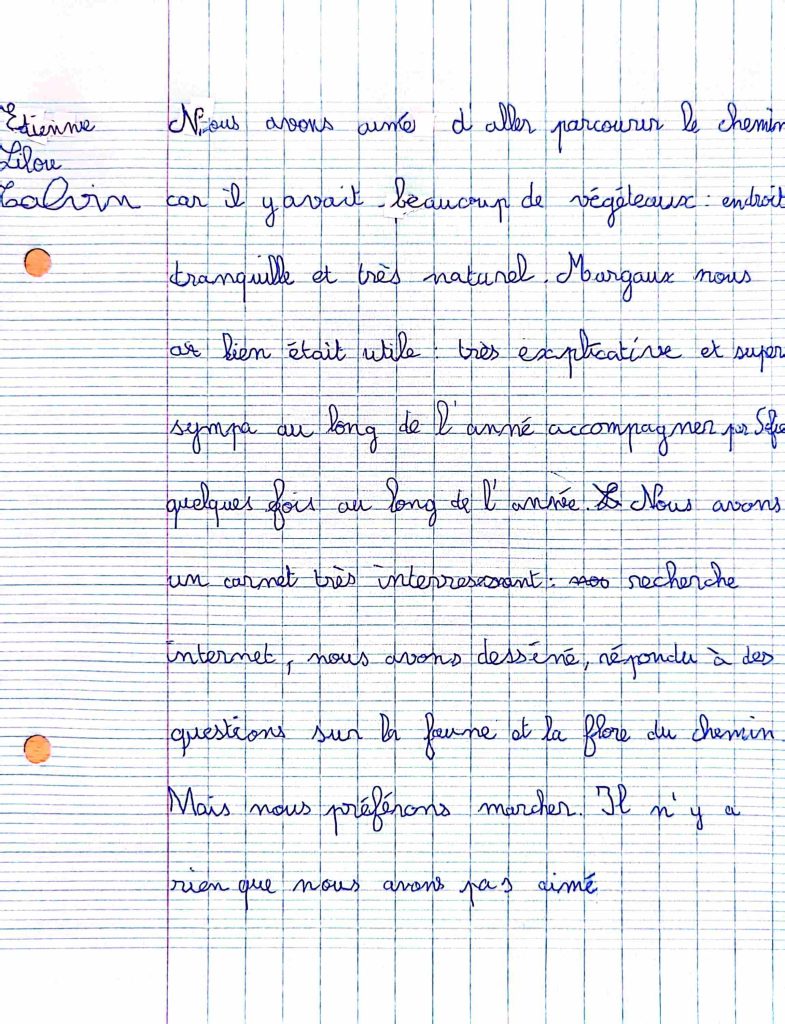 Etienne
Lilou
Calvin
Nous avons aimé d'aller parcourir le chemin
car il y avait beaucoup de végéteaux : endroit
tranquille et très naturel. Margaux nous
a bien était utile : très explicative et super
sympa au long de l'anné accompagner par
quelques fois au long de l'année. Nous avons
un carnet très interressant : recherche
internet, nous avons desséné, répondu à des
questions sur la faune et la flore du chemin.
Mais nous préférons marcher. Il n'y a
rien que nous avons pas aimé